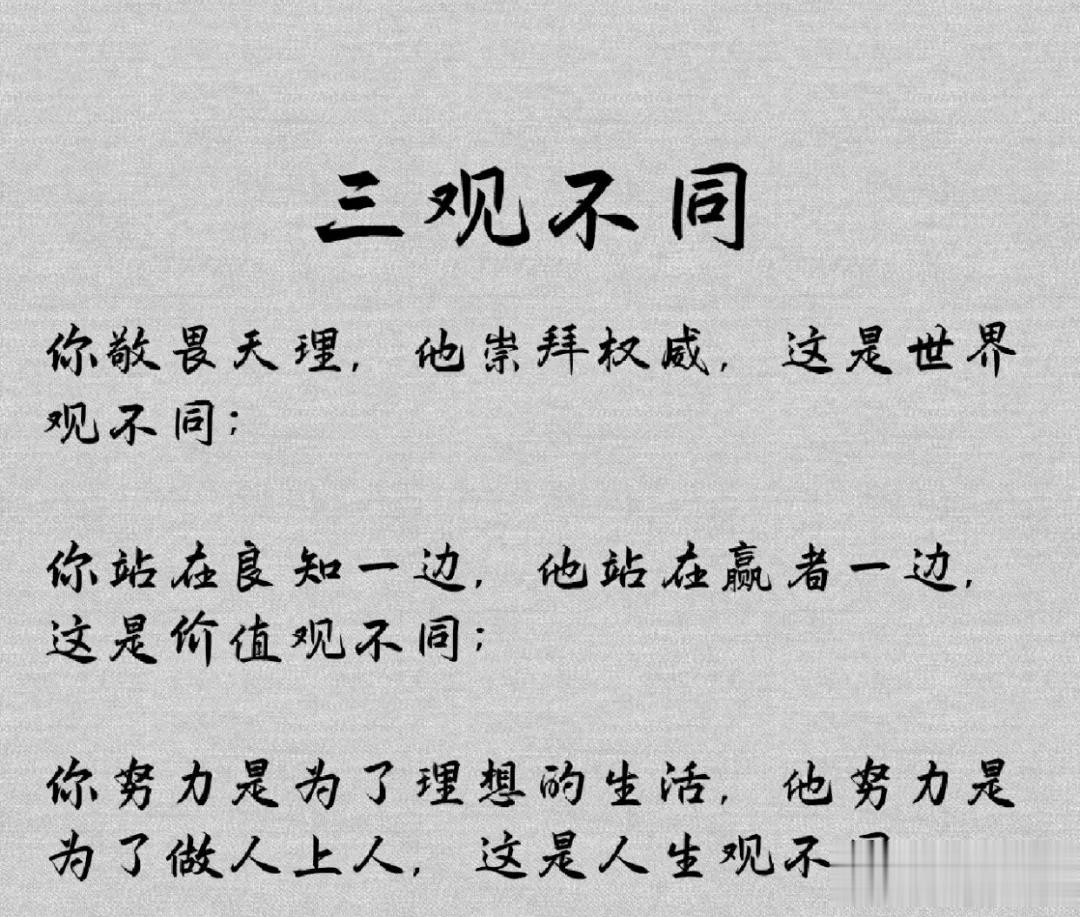 三观不同
你敬畏天理，他崇拜权威，这是世界
观不同；
你站在良知一边，他站在赢者一边，
这是价值观不同；
你努力是为了理想的生活，他努力是
为了做人上人，这是人生观不